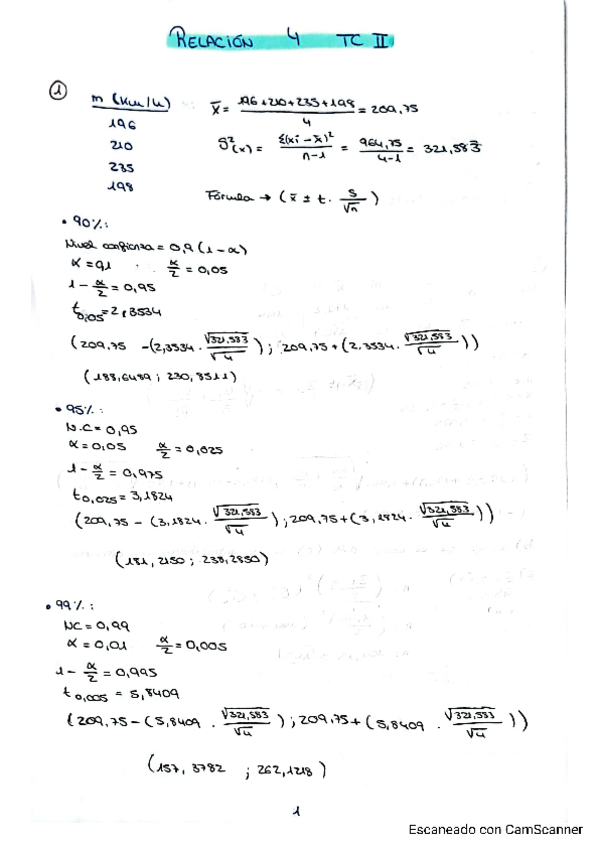 RELACIÓN 4 TC II
①
m (Km/h)
196
210
235
198
x̄ = 196+210+235+198 / 4 = 209,75
S²(x) = Σ(xi - x̄)² / n-1 = 964,75 / 4-1 = 321,583
Fórmula → (x̄ ± t · S/√n)
• 90%:
Nivel confianza = 0,9 (1-α)
α = 0,1 α/2 = 0,05
1 - α/2 = 0,95
t0,05 = 2,3534
(209,75 - (2,3534 · √321,583/√4) ; 209,75 + (2,3534 · √321,583/√4))
(188,6489 ; 230,8511)
• 95%:
N.C = 0,95
α = 0,05 α/2 = 0,025
1 - α/2 = 0,975
t0,025 = 3,1824
(209,75 - (3,1824 · √321,583/√4) ; 209,75 + (3,1824 · √321,583/√4))
(181,2150 ; 238,2850)
• 99%:
NC = 0,99
α = 0,01 α/2 = 0,005
1 - α/2 = 0,995
t0,005 = 5,8409
(209,75 - (5,8409 · √321,583/√4) ; 209,75 + (5,8409 · √321,583/√4))
(157,3782 ; 262,1218)
1
Escaneado con CamScanner